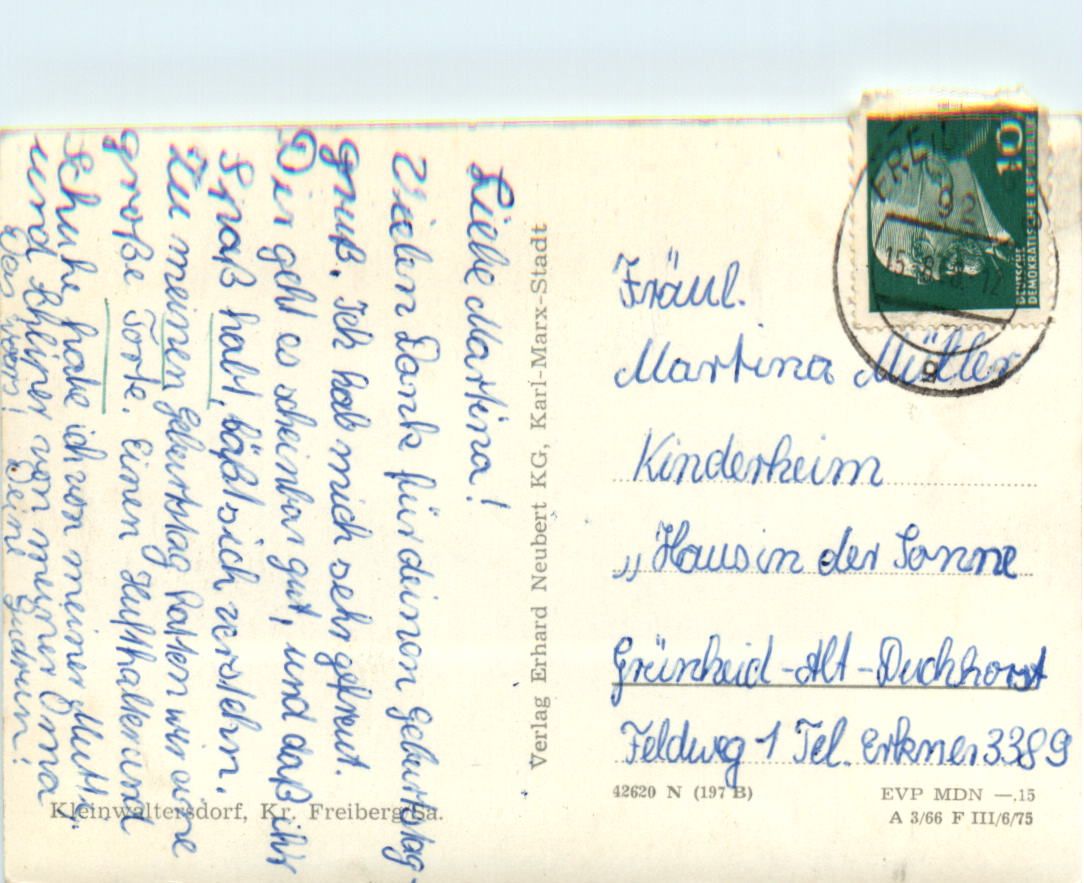 Liebe Martina!
Vielen Dank für deinen Geburtstag-
gruß. Ich hab mich sehr gefreut.
Dir geht es scheinbar gut, und daß ihr
Spaß habt, läßt sich verstehn.
Zu meinen Geburtstag hatten wir eine
große Torte. Einen Hüfthalter und
Schuhe habe ich von meiner Mutti,
und Schliner von meiner Oma
Deine Gudrun!
Verlag Erhard Neubert KG, Karl-Marx-Stadt
Kleinwaltersdorf, Kr. Freiberg/Sa.
10
DEUTSCHE
DEMOKRATISCHE REPUBLIK
Fräul.
Martina Müller
Kinderheim
„Haus in der Sonne
Grünheid-Alt-Buchhorst
Feldweg 1 Tel. Erkner 3389
42620 N (197 B)
EVP MDN —.15
A 3/66 F III/6/75